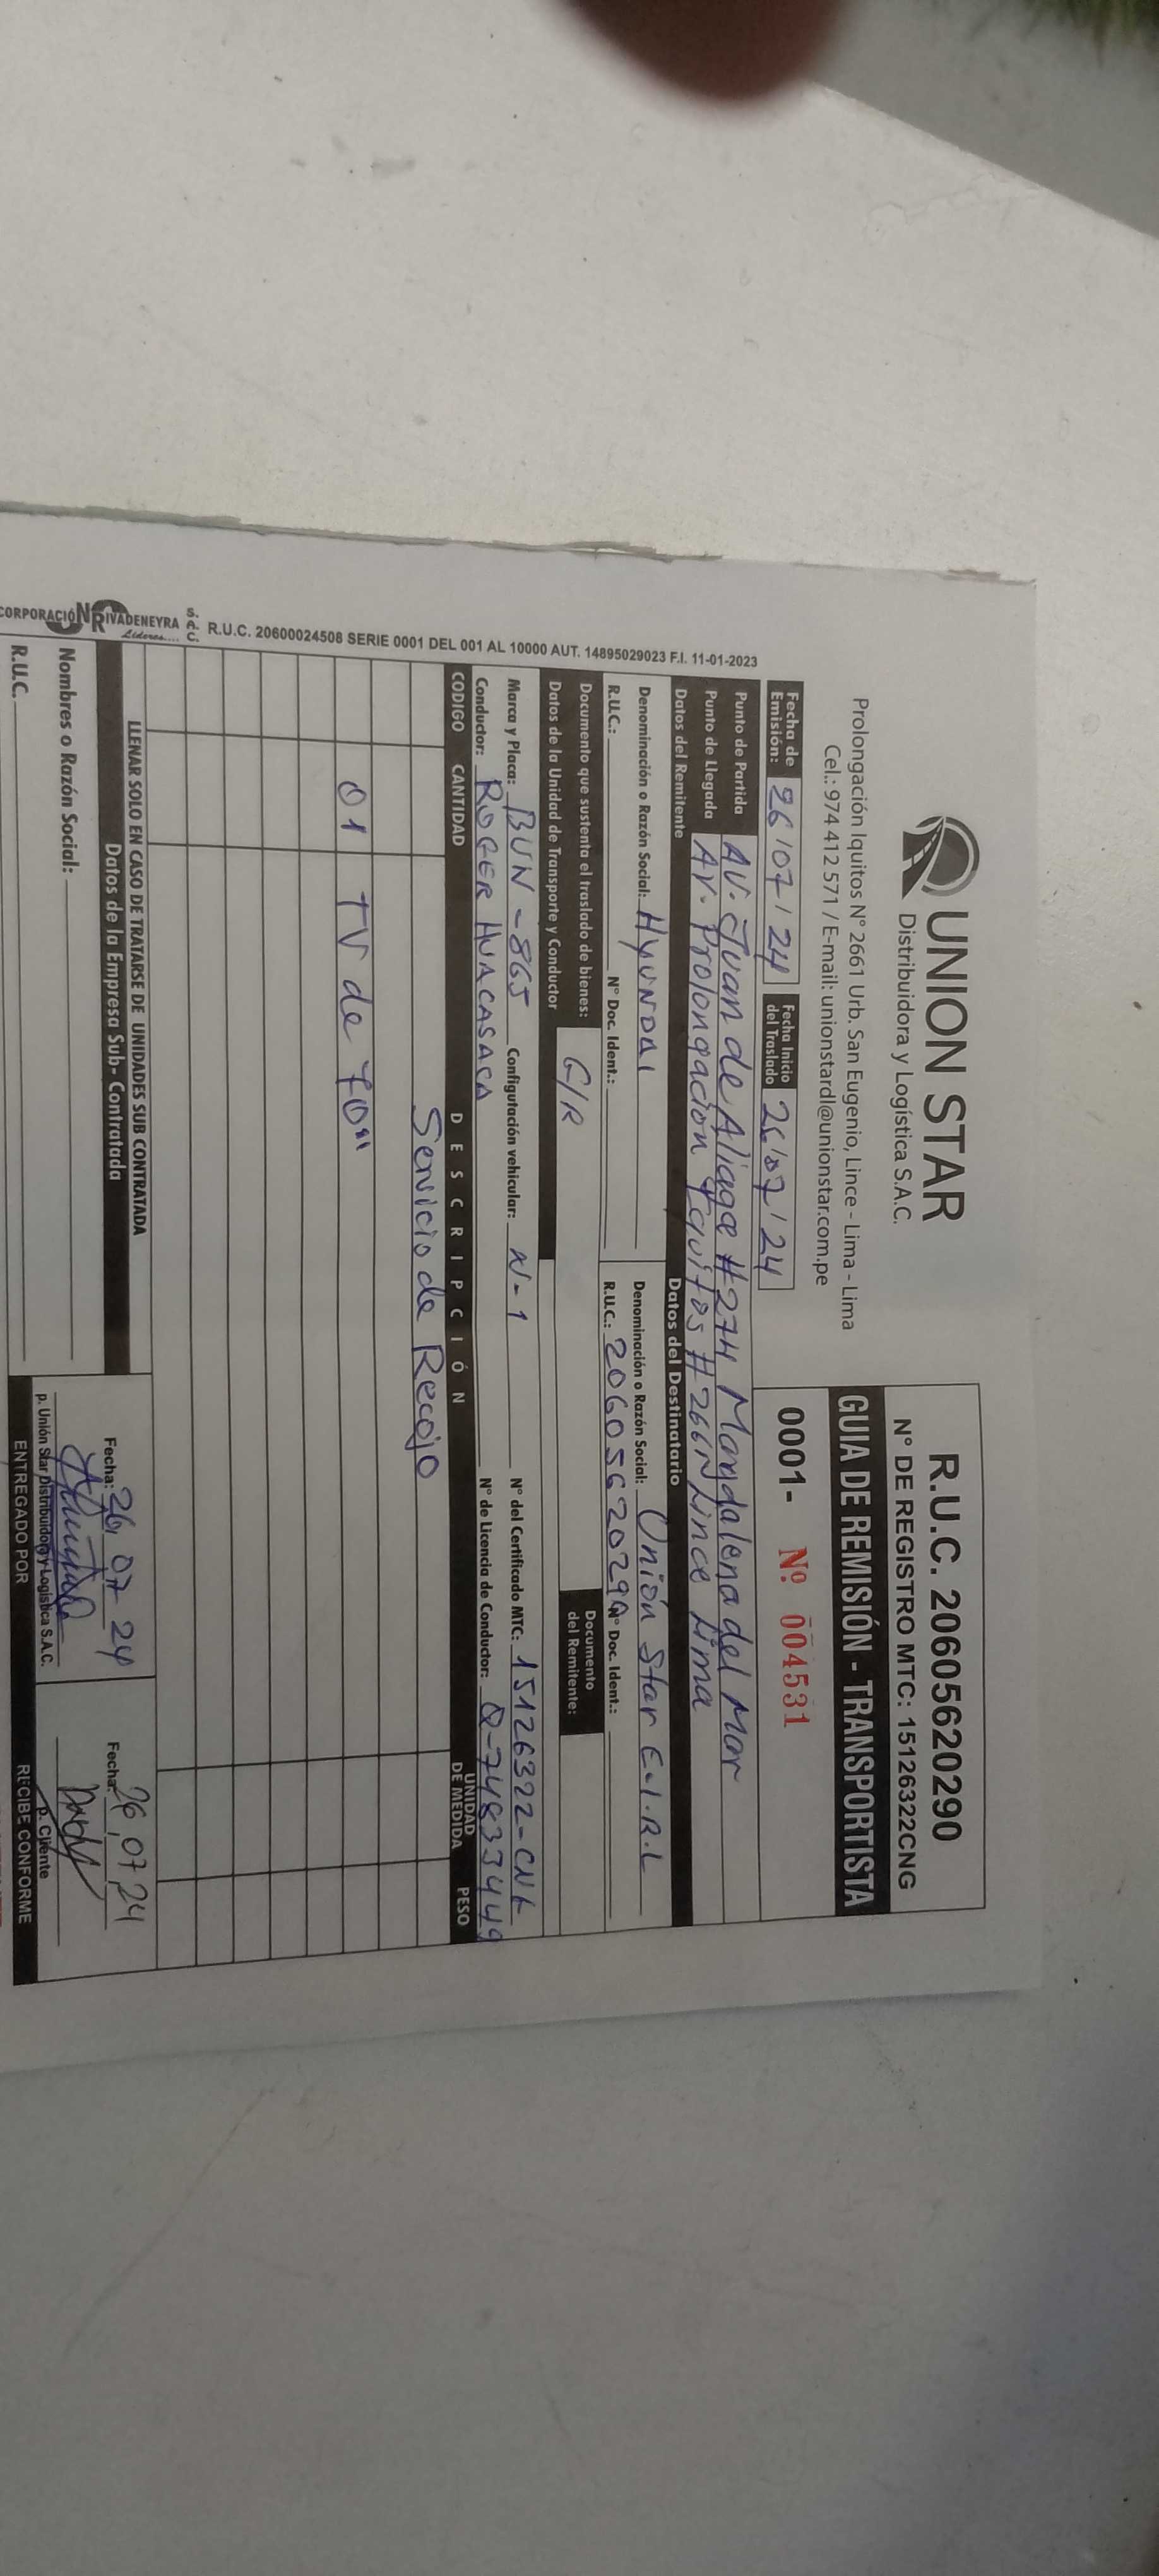 UNION STAR
Distribuidora y Logística S.A.C.
Prolongación Iquitos N° 2661 Urb. San Eugenio, Lince - Lima - Lima
Cel.: 974 412 571 / E-mail: unionstardl@unionstar.com.pe
R.U.C. 20605620290
N° DE REGISTRO MTC: 15126322CNG
GUIA DE REMISIÓN - TRANSPORTISTA
0001- Nº 004531
Fecha de Emisión: 26/07/24 Fecha Inicio del Traslado 26/07/24
Punto de Partida AV. Juan de Aliaga #274 Mandalena del Mar
Punto de Llegada AV. Prolongacion Iquitos # 266 Lince Lima
Datos del Remitente Datos del Destinatario
Denominación o Razón Social: HYUNDAI Denominación o Razón Social: Unión Star E.I.R.L
R.U.C.: N° Doc. Ident.: R.U.C.: 20605620290 N° Doc. Ident.:
Documento que sustenta el traslado de bienes: G/R Documento del Remitente:
Datos de la Unidad de Transporte y Conductor
Marca y Placa: BUN-865 Configutación vehicular: N-1 N° del Certificado MTC: 15126322-CNG
Conductor: ROGER HUACASACA N° de Licencia de Conductor: Q-74833449
CODIGO CANTIDAD DESCRIPCIÓN UNIDAD DE MEDIDA PESO
Servicio de Recojo
01 TV de 70"
LLENAR SOLO EN CASO DE TRATARSE DE UNIDADES SUB CONTRATADA
Datos de la Empresa Sub- Contratada
Nombres o Razón Social:
R.U.C.
Fecha: 26 07 24
p. Unión Star Distribuidora y Logística S.A.C.
ENTREGADO POR
Fecha: 26 07 24
p. Cliente
RECIBE CONFORME
CORPORACIÓN RIVADENEYRA S.A.C. R.U.C. 20600024508 SERIE 0001 DEL 001 AL 10000 AUT. 14895029023 F.I. 11-01-2023
Líderes....